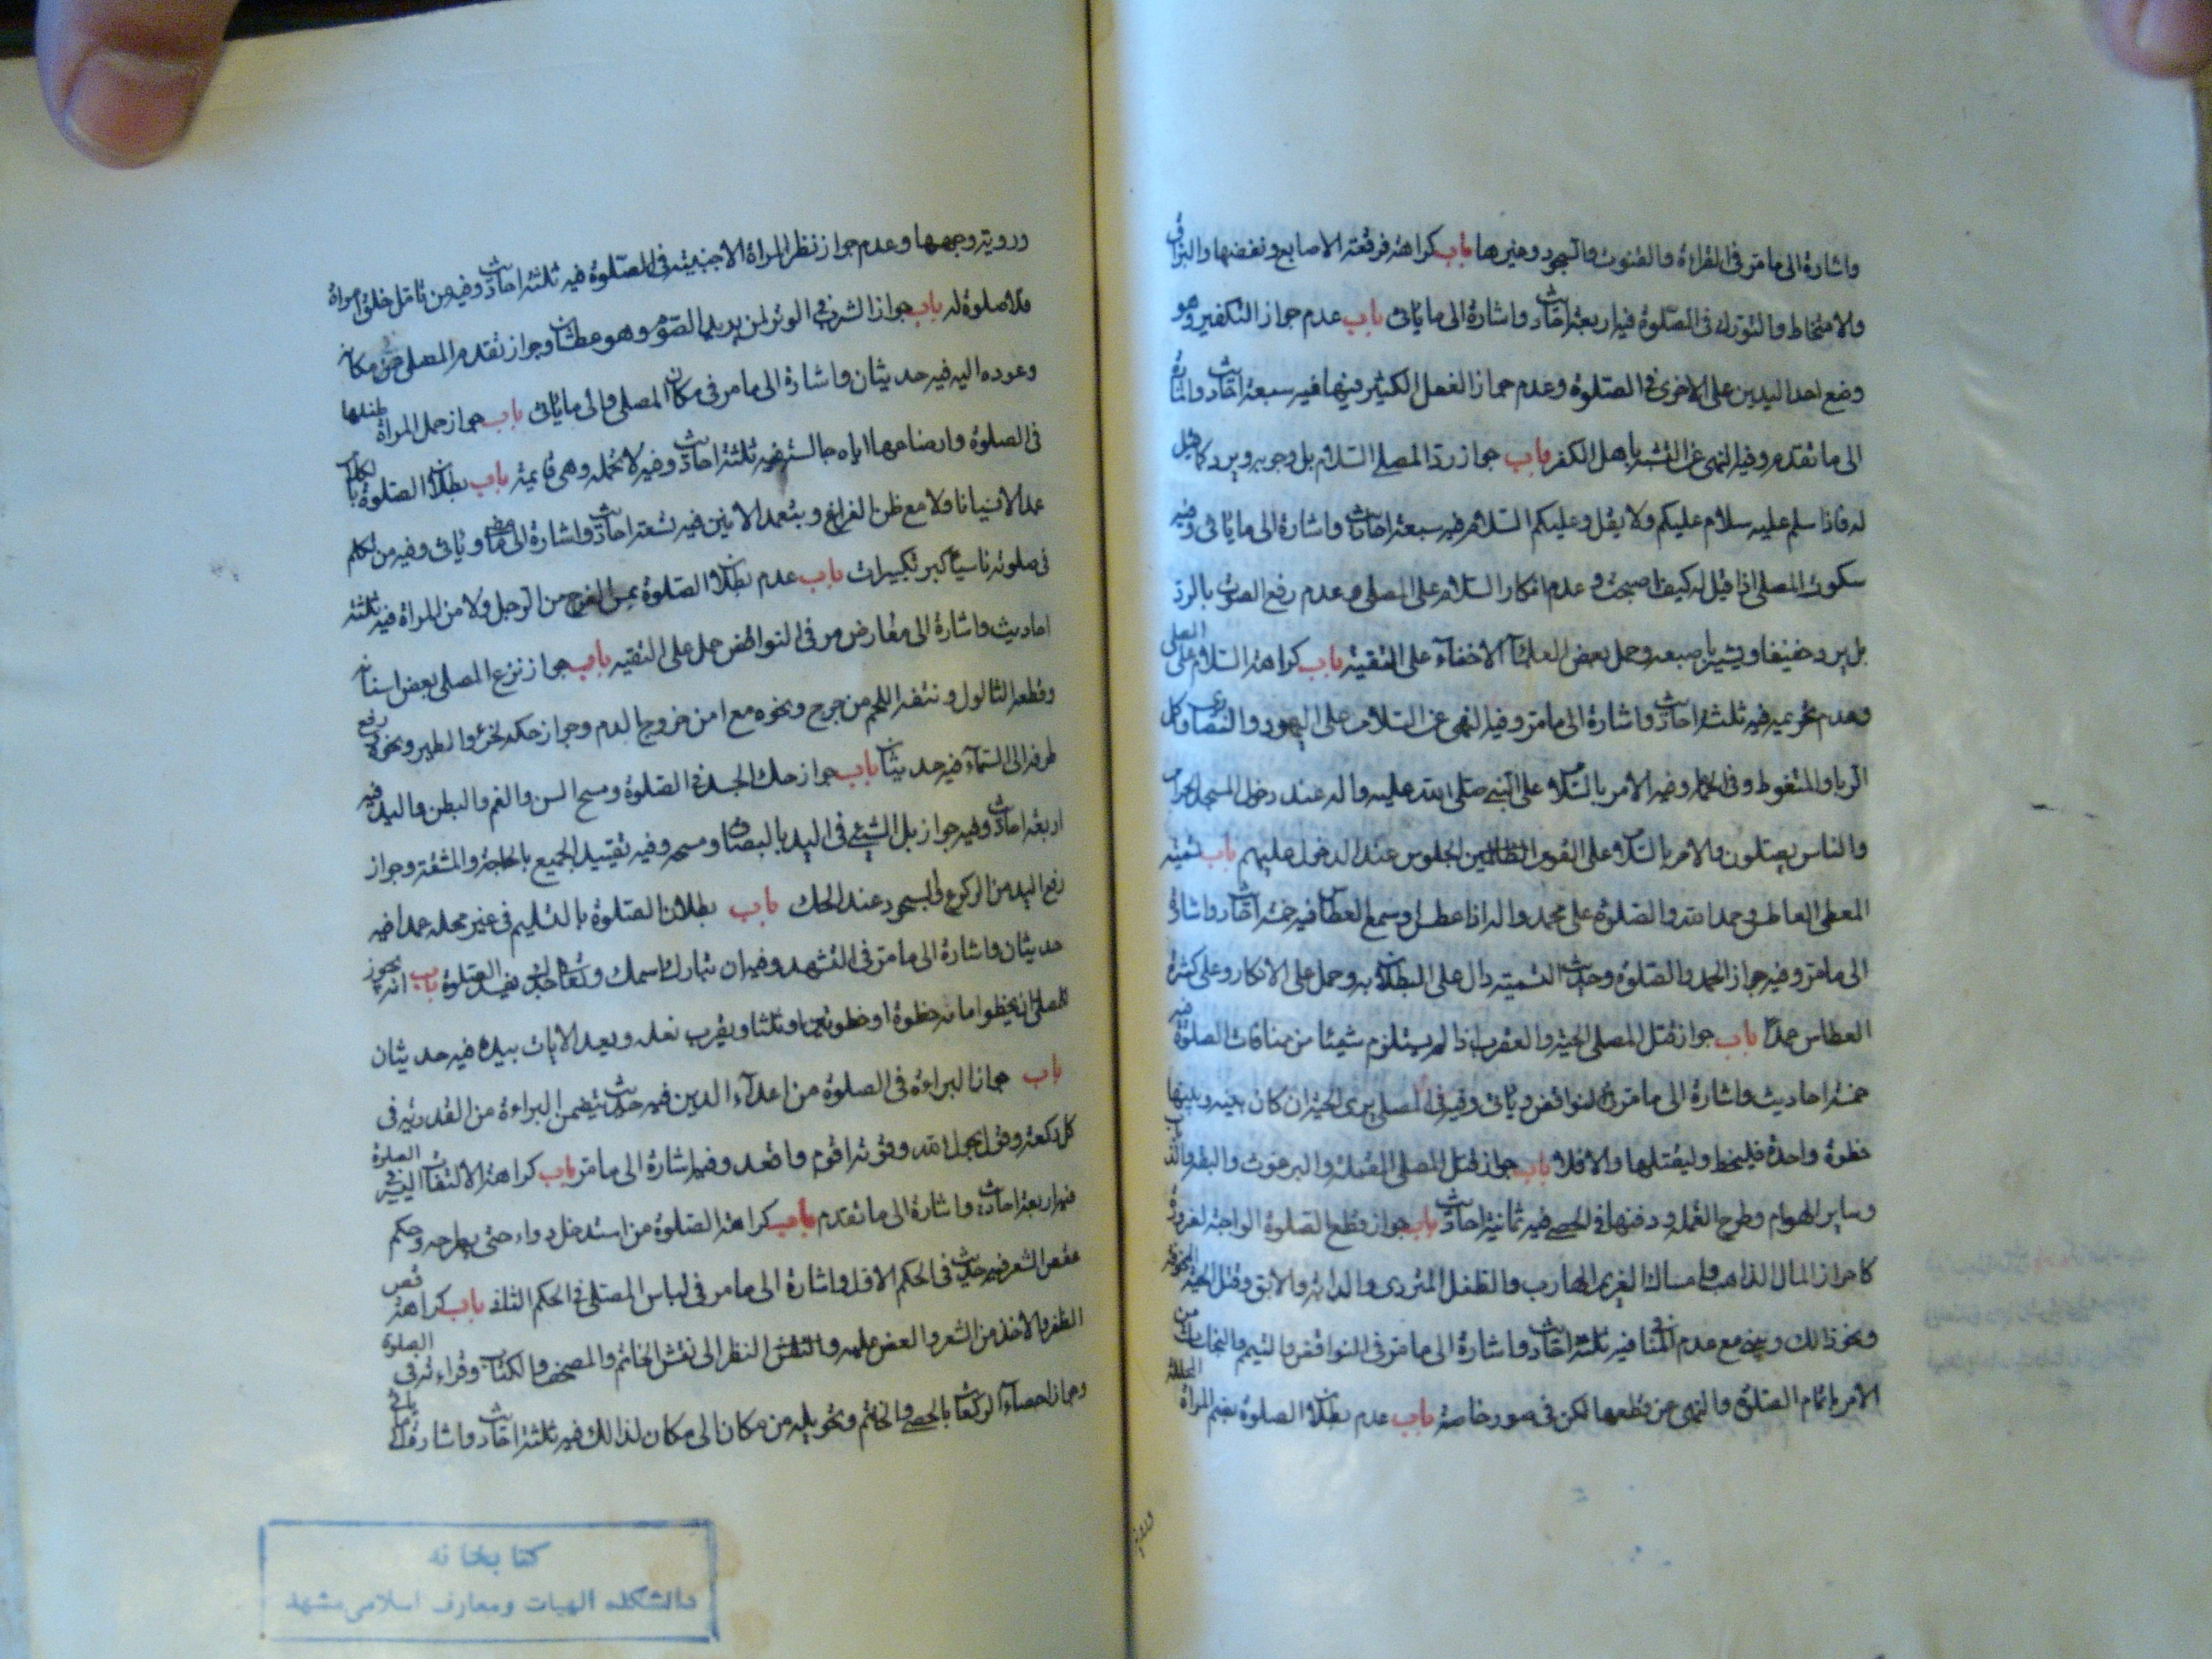 واشارة الى ما مر فى القراءة والقنوت والسجود وغيرها باب كراهة فرقعة الاصابع ونقضها والبزاق
والامتخاط والتورك فى الصلوة فيه اربعة احاديث واشارة الى ما ياتى باب عدم جواز التكفير وهو
وضع احد اليدين على الاخرى فى الصلوة وعدم جواز الفعل الكثير فيها فيه سبعة احاديث واشارة
الى ما تقدم وفيه النهى عن التشبه باهل الكفر باب جواز رد المصلى السلام بل وجوبه ويرد كما قيل
له فاذا سلم عليه سلام عليكم ولا يقل وعليكم السلام فيه سبعة احاديث واشارة الى ما ياتى وفيه
سكوت المصلى اذا قيل له كيف اصبحت وعدم انكار السلام على المصلى وعدم رفع الصوت بالرد
بل يرد خفيفا ويشير باصبعه وحمل بعض العلماء الاخفاء على التقية باب كراهة السلام على المصلى
وعدم تحريمه فيه ثلثة احاديث واشارة الى ما مر وفيه النهى عن السلام على اليهود والنصارى واكل
الربا والمتغوط وفى الحمام وفيه الامر بالسلام على النبى صلى الله عليه واله عند دخول المسجد الحرام
والناس يصلون والامر بالسلام على القوم الجلوس عند الدخول عليهم باب تسميت
المصلى العاطس وحمد الله والصلوة على محمد واله اذا عطس او سمع العطاس فيه خمسة احاديث واشارة
الى ما مر وفيه جواز الحمد والصلوة وحديث التسميت دال على البطلان به وحمل على الانكار وعلى كثرة
العطاس عمدا باب جواز قتل المصلى الحية والعقرب اذا لم يستلزم شيئا من منافيات الصلوة فيه
خمسة احاديث واشارة الى ما مر فى النواقض وياتى وفيه فى المصلى يرى الحية ان كان بينه وبينها
خطوة واحدة فليخط وليقتلها والا فلا باب جواز قتل المصلى القملة والبرغوث والبقة والذباب
وساير الهوام وطرح القملة ودفنها فى الحصى فيه ثمانية احاديث باب جواز قطع الصلوة الواجبة لضرورة
كاحراز المال الذاهب وامساك الغريم الهارب والطفل المتردى والدابة والابق وقتل الحية المخوفة
ونحو ذلك ويبنى مع عدم المنافى فيه ثلثة احاديث واشارة الى ما مر فى النواقض والتيمم والنجاسات من
الامر باتمام الصلوة والنهى عن قطعها لكن فى صور خاصة باب عدم بطلان الصلوة بضم المراة المحللة
ورؤية
ورؤية وجهها وعدم جواز نظر المراة الاجنبية فى الصلوة فيه ثلثة احاديث وفيه من تامل خلق امراة
فلا صلوة له باب جواز الشرب فى الوتر لمن يريد الصوم وهو عطشان وجواز تقدم المصلى عن مكانه
وعوده اليه فيه حديثان واشارة الى ما مر فى مكان المصلى والى ما ياتى باب جواز حمل المراة طفلها
فى الصلوة وارضاعها اياه جالسة فيه ثلثة احاديث وفيه لا تحمله وهى قايمة باب بطلان الصلوة بالكلام
عمدا لا نسيانا ولا مع ظن الفراغ وبتعمد الانين فيه تسعة احاديث واشارة الى ما مضى وياتى وفيه من تكلم
فى صلوته ناسيا كبر تكبيرات باب عدم بطلان الصلوة بمس الفرج من الرجل ولا من المراة فيه ثلثة
احاديث واشارة الى معارض مر فى النواقض حمل على التقية باب جواز نزع المصلى بعض اسنانه
وقطعه الثالول ونتفه اللحم من جرح ونحوه مع امن خروج الدم وجواز حكه لخرء الطير ونحوه ورفع
طرفه الى السماء فيه حديثان باب جواز حك الجسد فى الصلوة ومسح السن والفم والبطن واليد فيه
اربعة احاديث وفيه جواز بل الشىء فى اليد بالبصاق ومسحه وفيه تقييد الجميع بالحاجة والمشقة وجواز
رفع اليد من الركوع والسجود عند الحك باب بطلان الصلوة بالتسليم فى غير محله عمدا فيه
حديثان واشارة الى ما مر فى التشهد وفيه ان تبارك اسمك وتعالى جدك يفسد الصلوة باب انه يجوز
للمصلى ان يخطو امامه خطوة او خطوتين او ثلثا ويقرب نعله ويعد الايات بيده فيه حديثان
باب جواز البراءة فى الصلوة من اعداء الدين فيه حديث يتضمن البراءة من القدرية فى
كل ركعة وفى بحول الله وقوته اقوم واقعد وفيه اشارة الى ما مر باب كراهة الالتفات اليسير فى الصلوة
فيه اربعة احاديث واشارة الى ما تقدم باب كراهة الصلوة من استدخل دواء حتى يطرحه وحكم
عقص الشعر فيه حديث فى الحكم الاول واشارة الى ما مر فى لباس المصلى فى الحكم الثانى باب كراهة قص
الظفر والاخذ من الشعر والعض عليه والنظر الى نقش الخاتم والمصحف والكتاب وقراءته فى الصلوة
وجواز احصاء الركعات بالحصى والخاتم وتحويله من مكان الى مكان لذلك فيه ثلثة احاديث واشارة الى ما ياتى
كتابخانه
دانشكده الهيات ومعارف اسلامى مشهد